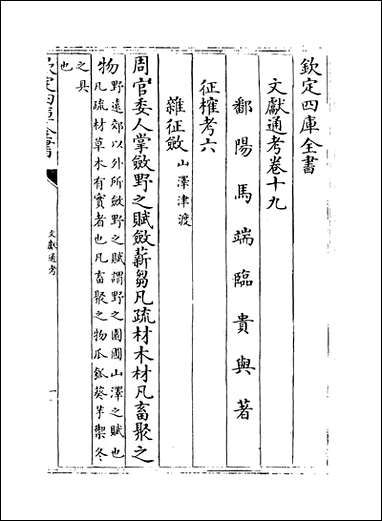 欽定四庫全書
文獻通考卷十九
鄱陽馬端臨貴與著
征榷考六
雜征斂山澤津渡
周官委人掌斂野之賦斂薪芻凡疏材木材凡畜聚之
物野遠郊以外所斂野之賦謂野之園圃山澤之賦也
凡疏材草木有實者也凡畜聚之物瓜瓠葵芋禦冬
之具
也
欽定四庫全書
文獻通考
一